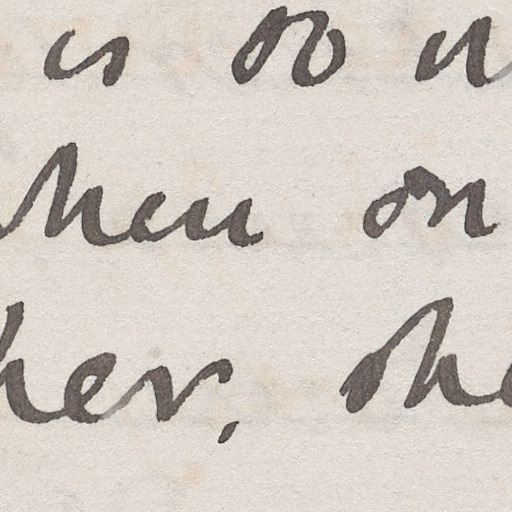 is so
hen on
her, she